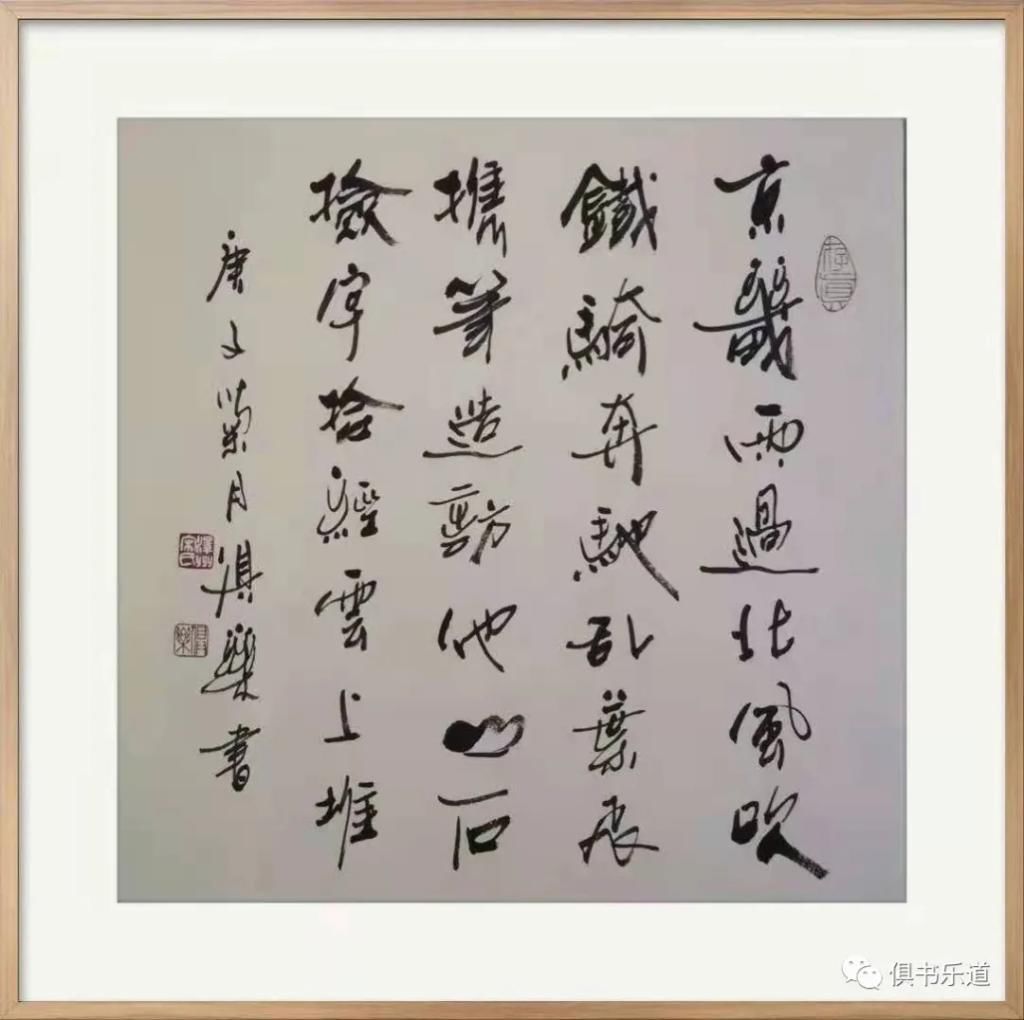 存真
京畿雨過北風吹
鐵騎奔馳乱葉
攜筆造訪他山石
撿字拾經雲上堆
庚子菊月俱樂書
俱樂
俱书乐道